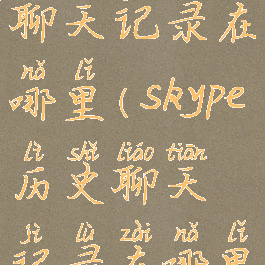 聊天记录在
nǎ lǐ
哪里(skype
lì shǐ liáo tiān
历史聊天
jì lù zài nǎ lǐ
记录在哪里